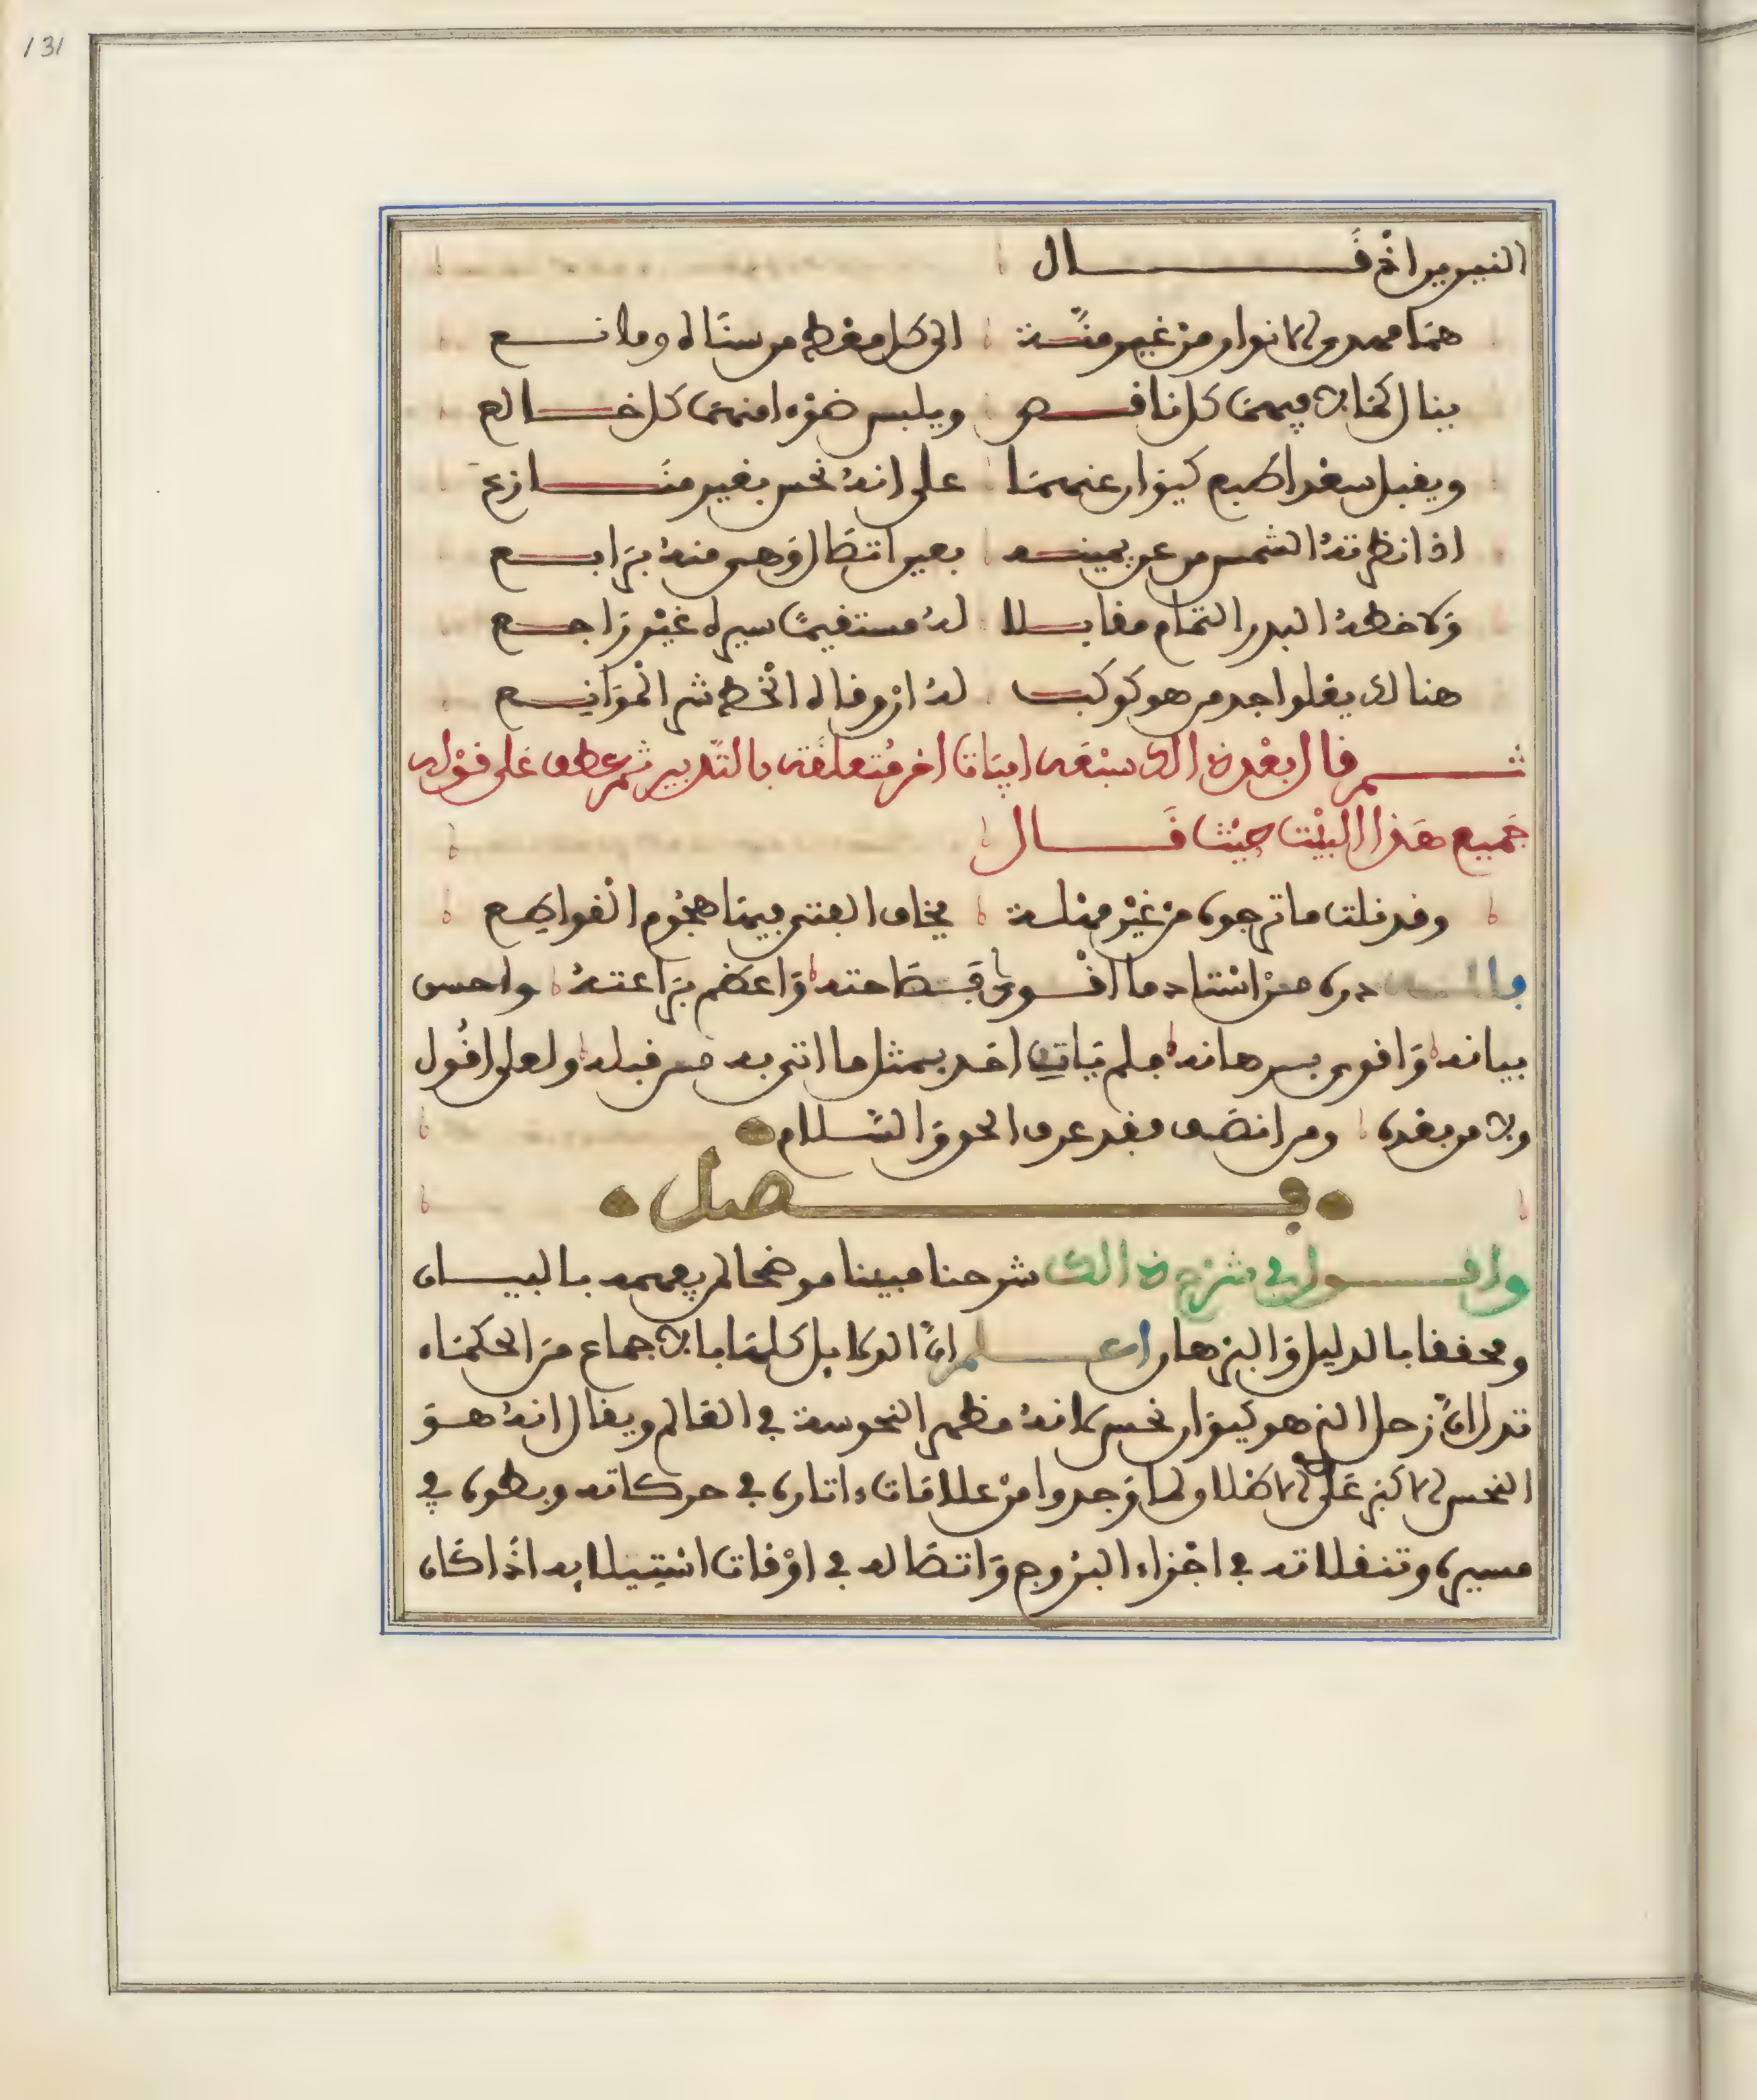 131
النيرين اذ قال
هما ممدى الانوار من غير منة الى كل معط من سناه ومانع
ينال كمالا منهما كل ناقص ويلبس ضوءا منهما كل خالع
ويقبل سعدا طبع كيوان عنهما على انه نحس بغير منازع
اذا نظرته الشمس من عن يمينه بعين اتصال وهي منه برابع
ولاحظه البدر التمام مقابلا له مستقيما سيره غير راجع
هنالك يعلوا جد من هو كوكب له ان وقاه الحظ شر الموانع
ثم قال بعد ذالك سبعه ابياتا اخر متعلقة بالتدبير ثم عطف على قوله
جميع هذا البيت حيث قال
وقد نلت ما ترجوه من غير مهلة يخاف الفتى فيها هجوم القواطع
فالله دره من استاد ما اقوى فصاحته واعظم براعته واحسن
بيانه واقوى برهانه فلم يات احد بمثل ما اتى به من قبله ولعلى اقول
ولا من بعده ومن انصف فقد عرف الحق والسلام
فصل
واقول في شرح ذالك شرحا مبينا موضحا لم يعهد بالبيان
ومحققا بالدليل والبرهان اعلم ان الاوايل كلها باجماع من الحكماء
تدل ان زحل الذي هو كيوان نحس لانه مظهر النحوسة في العالم ويقال انه هو
النحس الاكبر على الاطلاق ولما وجدوا من علامات ءاثاره في حركاته وبطوه في
مسيره وتنقلاته في اجزاء البروج واتصاله في اوقات استيلايه اذا كان